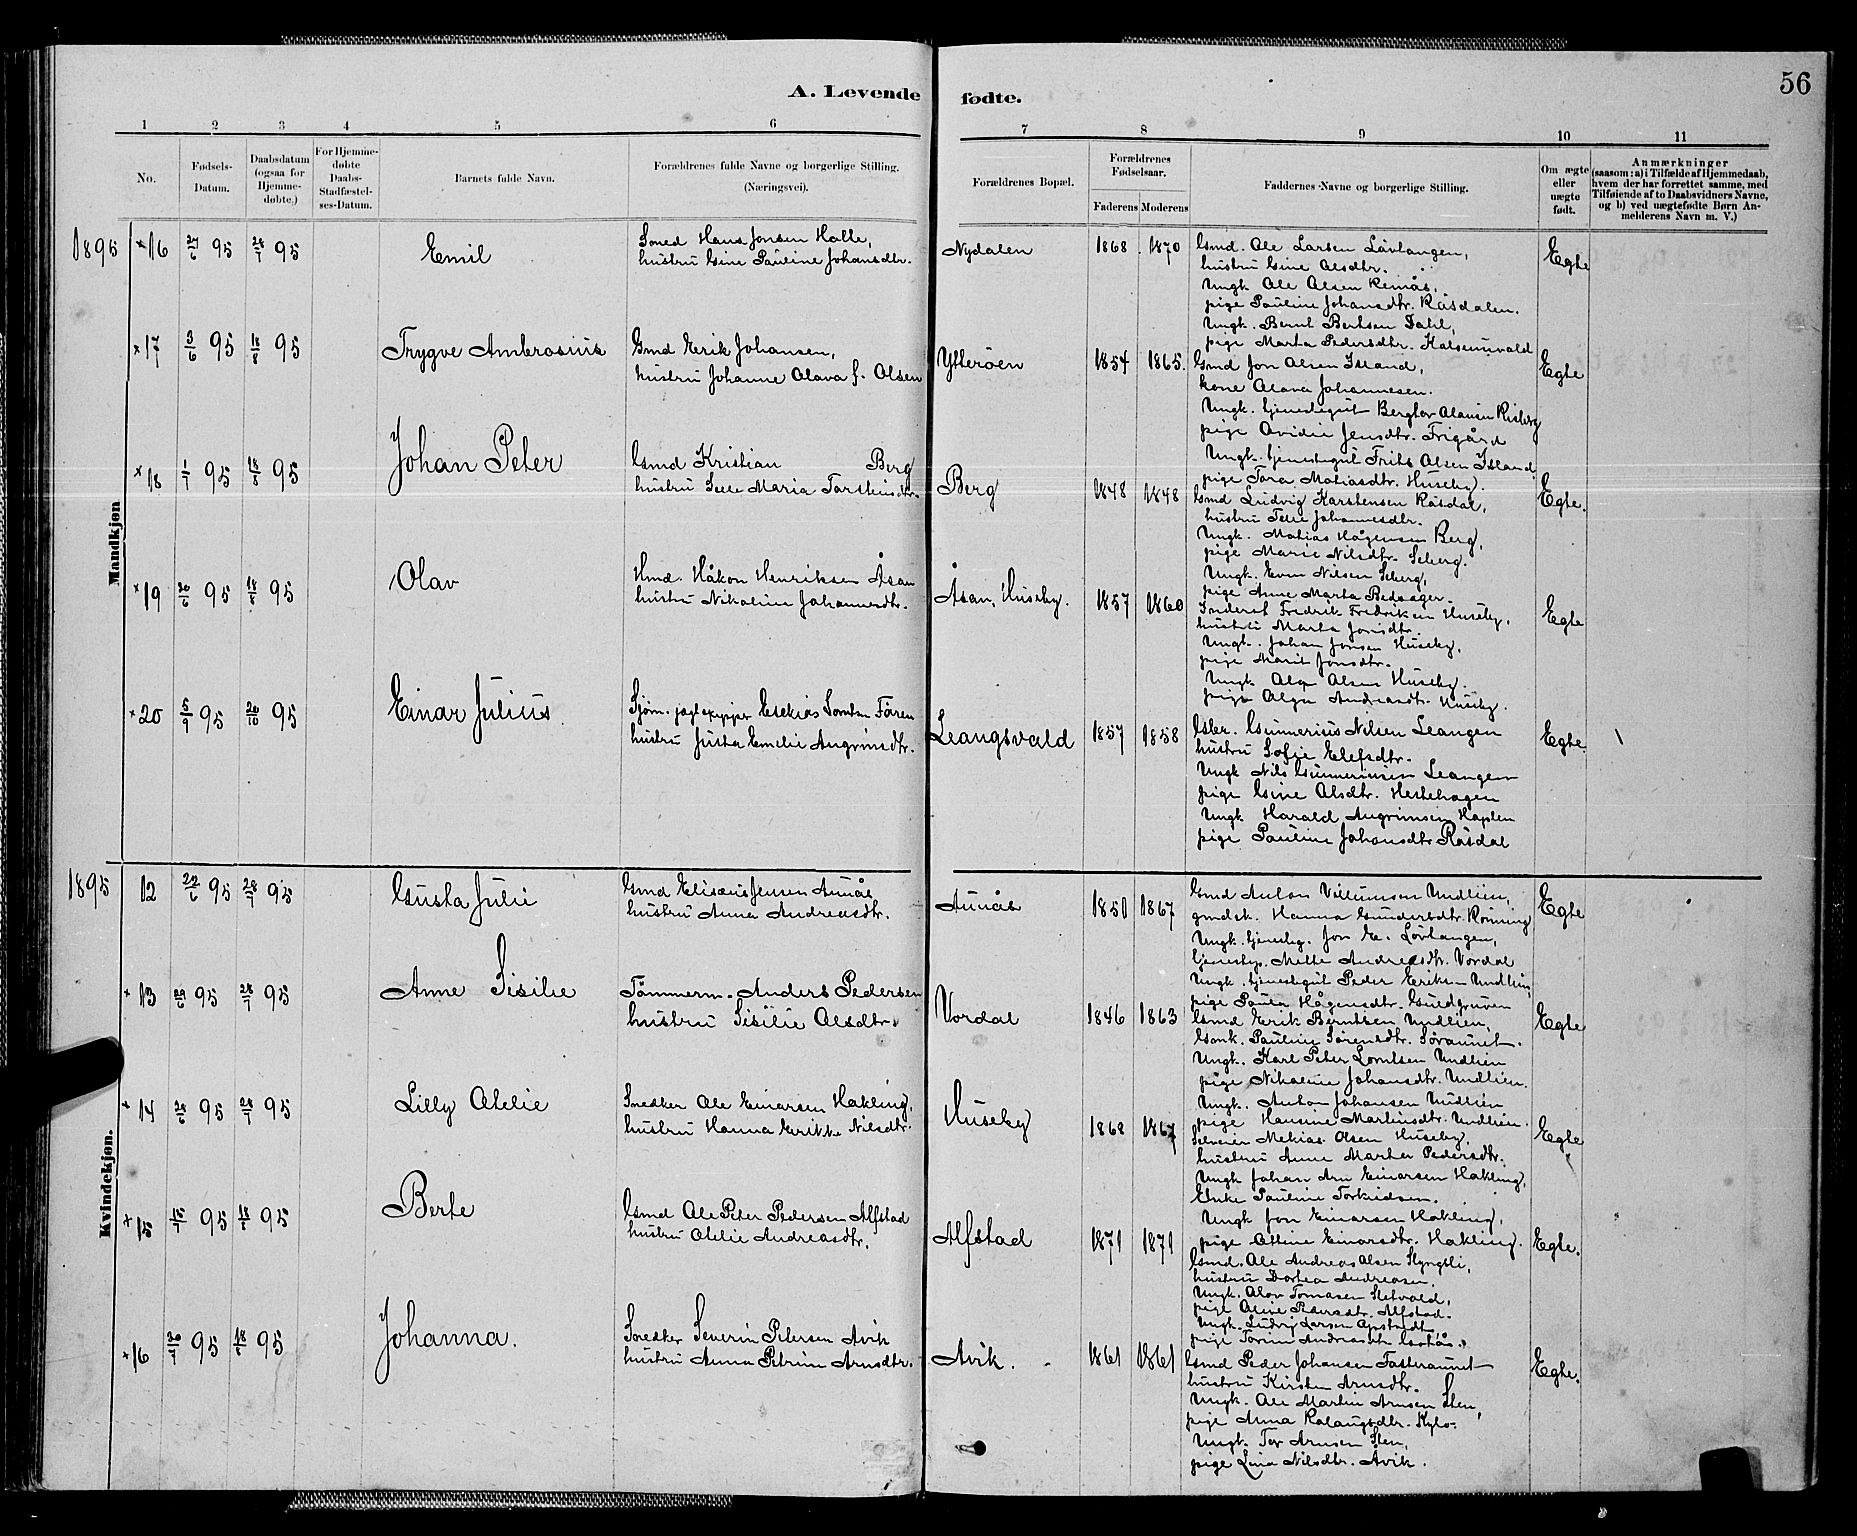 A. Levende fødte.
56
1 2 3 4 5 6 7 8 9 10 11
No.
Fødsels-Datum.
Daabsdatum (ogsaa for Hjemme-døbte.)
For Hjemme-døbte Daabs-Stadfæstel-ses-Datum.
Barnets fulde Navn.
Forældrenes fulde Navne og borgerlige Stilling. (Næringsvei).
Forældrenes Bopæl.
Forældrenes Fødselsaar.
Faderens Moderens
Faddernes Navne og borgerlige Stilling.
Om ægte eller uægte født.
Anmærkninger (saasom: a) i Tilfælde af Hjemmedaab, hvem der har forrettet samme, med Tilføiende af to Daabsvidners Navne, og b) ved uægtefødte Børn An-melderens Navn m. V.)
Mandkjøn
1895 ×16 27/6 95 28/7 95 Emil
Smed Hans Jonsen Halle,
hustru Gine Pauline Johansdtr.
Nydalen 1868 1870
Gmd. Ole Larsen Lövtangen,
hustru Gine Olsdtr.
Ungk Ole Olsen Remås,
pige Pauline Johansdtr. Råsdalen.
Ungk. Bernt Berntsen Dahl,
pige Marta Pedersdtr.
Egte
×17 3/6 95 18/8 95 Trygve Ambrosius
Gmd Erik Johansen,
hustru Johanne Olava f. Olsen
Ytterøen 1854 1865.
Gmd Jon Olsen Island,
kone Olava Johannesen.
Ungk. tjenestegut Bergtor Olausen Risberg
pige Ovidie Jensdtr. Frigård
Ungk. tjenestegut Frits Olsen Island
pige Tora Matiasdtr. Huseby.
Egte
×18 1/7 95 18/8 95 Johan Peter
Gmd Kristian Berg
hustru Maria Torstensdtr.
Berg 1848 1848
Gmd Ludvig Karstensen Råsdal,
hustru Johannesdtr.
Ungk. Matias Hågensen Berg,
pige Marie Nilsdtr. Seberg.
Ungk. Even Nilsen Seberg,
pige Anne Marta
Egte.
×19 20/6 95 18/8 95 Olav
Hmd. Håkon Henriksen Åsan
hustru Nikoline Johannesdtr.
Åsan, Huseby. 1857 1860
Inderst Fredrik Fredriksen Huseby,
hustru Marta Jonsdtr.
Ungk. Johan Jonsen Huseby,
pige Marit Jonsdtr.
Ungk Olof Olsen Huseby.
pige Olga Andreasdtr. Huseby.
Egte
×20 5/9 95 20/10 95 Einar Julius.
Sjøm. jagtskipper Esekias Lorntsen Fören
hustru Justa Emelie Angrimsdtr.
Leangsvald 1857 1858
Gbr. Gunnerius Nilsen Leangen
hustru Sofie Elefsdtr.
Ungk Nils Gunneriusen Leangen
pige Gine Olsdtr. Hestehagen
Ungk. Harald Angrimsen Hoplen
pige Pauline Johansdtr Råsdal
Egte.
Kvindekjøn.
1895 12 22/6 95 28/7 95 Gusta Julie
Gmd Elisæus Jensen Aunås
hustru Anna Andreasdtr.
Aunås 1850 1867
Gmd Anton Villumsen Undlien,
gmdsk. Hanna Gundersdtr. Rönning
Ungk. tjenestg. Jon E. Lövtangen,
tjenestep. Mette Andreasdtr. Vordal
Ungk. tjenestegut Peder Eriksen Undlien,
pige Paula Hågensdtr. Guldgruven
Egte
×13 95 28/7 95 Anne Sisilie
Tömmerm. Anders Pedersen
hustru Sisilie Olsdtr.
Vordal 1846 1863
Gmd Erik Berntsen Undlien,
Gmk. Pauline Sörensdtr. Söraunet.
Ungk. Karl Peter Lorntsen Undlien
pige Nikoline Johansdtr. Undlien.
Ungk. Anton Johansen Undlien
pige Hansine Martinsdtr. Undlien.
Egte
×14 95 28/7 95 Lilly Otelie
Snedker Ole Einarsen Hakling,
hustru Hanna Erikke Nilsdtr.
Huseby 1868 1867
Selveier Mekias Olsen Huseby,
hustru Anne Marta Pedersdtr.
Ungk Johan Arn Einarsen Hakling,
Enke Pauline Torkidsen.
Ungk Jon Einarsen Hakling,
pige Ottine Einarsdtr. Hakling.
Egte
×15 15/7 95 18/8 95 Berte
Gmd Ole Peter Pedersen Alfstad
hustru Otelie Andreasdtr.
Alfstad 1871 1871
Gmd. Ole Andreas Olsen Slyngsli,
hustru Dortea Andreasen.
Ungk. Olav Tomasen Sletvold,
pige Oline Pedersdtr. Alfstad.
Ungk. Ludvig Larsen
pige Torine Andreasdtr.
Egte.
×16 20/7 95 18/8 95 Johanna.
Snedker Severin Petersen Avik
hustru Anna Petrine Arnsdtr.
Avik. 1861 1861
Gmd Peder Johansen Fasteraunet
hustru Kirsten Arnsdtr.
Ungk. Ole Martin Arnsen Sten,
pige Anna
Ungk. Tor Arnsen Sten,
pige Lina Nilsdtr. Avik.
Egte.